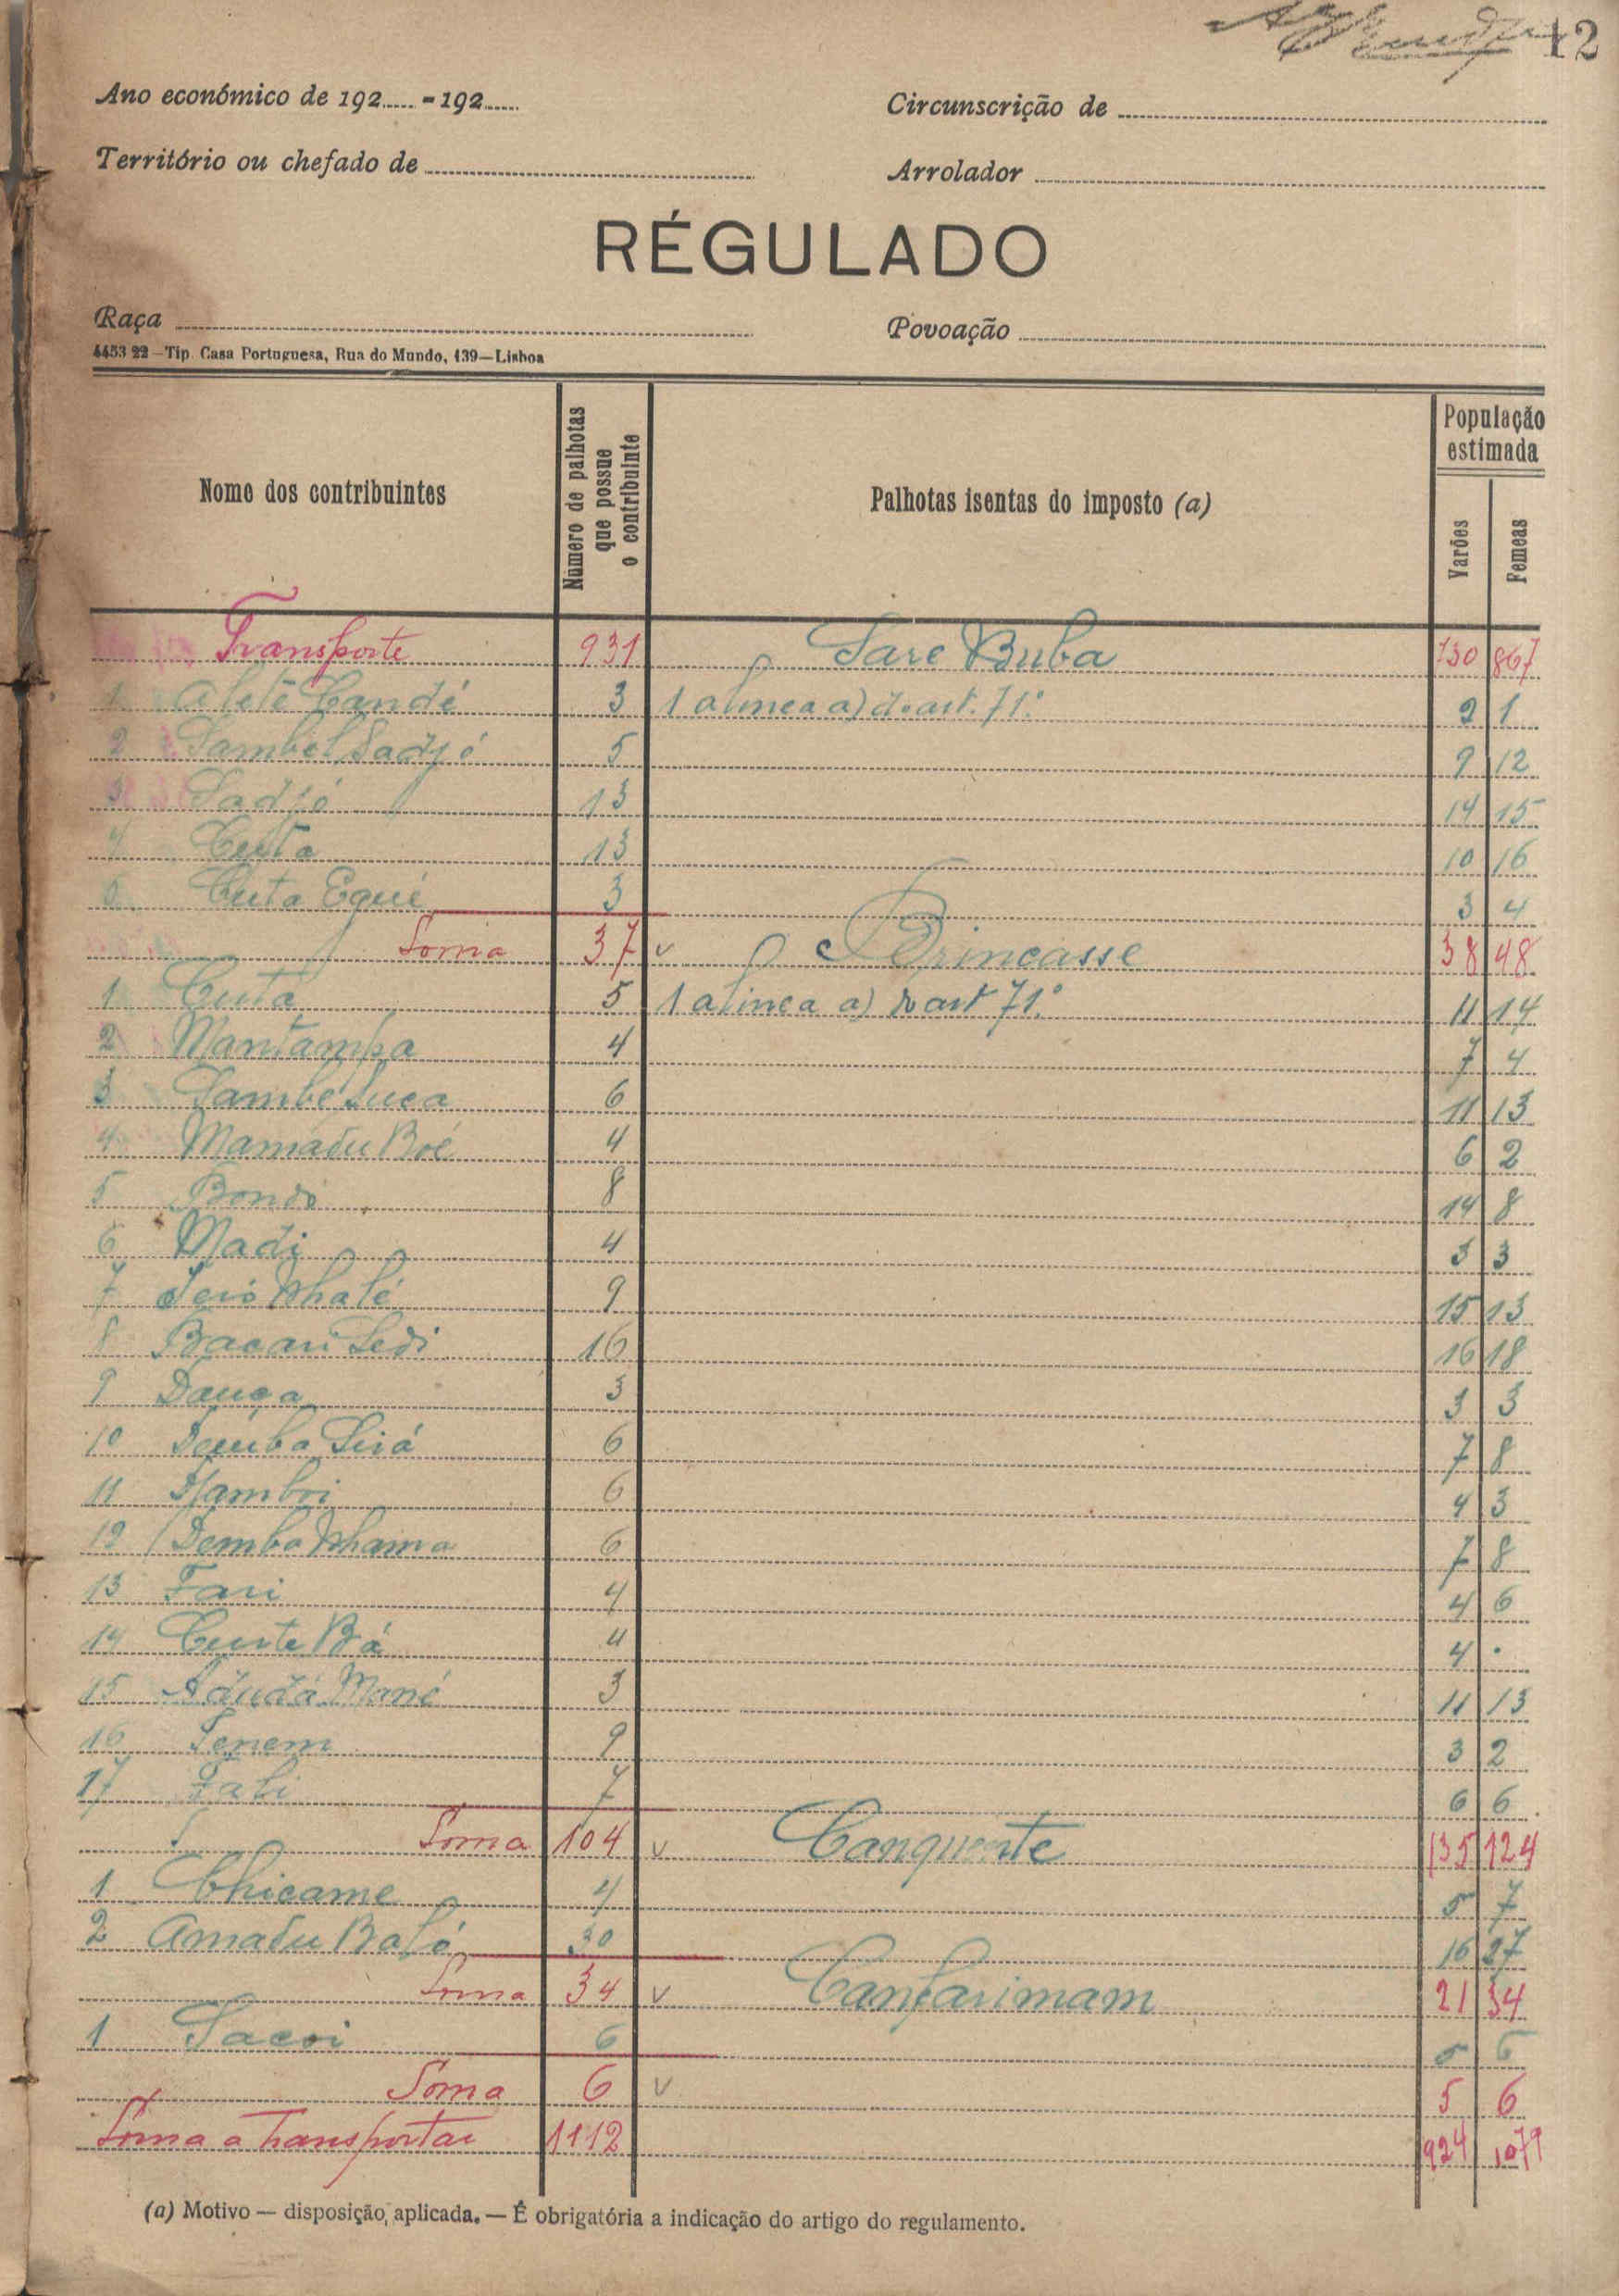 12
Ano económico de 192..... - 192.....
Circunscrição de
Território ou chefado de
Arrolador
RÉGULADO
Raça
Povoação
4453 22 — Tip. Casa Portuguesa, Rua do Mundo, 139 — Lisboa
Nome dos contribuintes
Número de palhotas que possue o contribuinte
Palhotas isentas do imposto (a)
População estimada
Varões
Femeas
Transporte 931 Sare Buba 730 867
1 Aleté Candé 3 1 alinea a) do art. 71.º 2 1
2 Sambel Sadjó 5 9 12
3 Sadjó 13 14 15
4 Cuta 13 10 16
5 Cuta Egué 3 3 4
Soma 37 v Brincasse 38 48
1 Cutá 5 1 alinea a) do art 71.º 11 14
2 Mantampa 4 7 4
3 Sambé Suca 6 11 13
4 Mamadu Boé 4 6 2
5 Bondo 8 14 8
6 Madi 4 3 3
7 9 15 13
8 Bacari Sedi 16 16 18
9 Dauga 3 3 3
10 Demba Sirá 6 7 8
11 6 4 3
12 Demba 6 7 8
13 Fari 4 4 6
14 Bá 4 4 .
15 Mané 3 11 13
16 Senem 9 3 2
17 7 6 6
Soma 104 v Canquente 135 124
1 Chicame 4 5 7
2 Amadu Baló 30 16 27
Soma 34 v Canfarimam 21 34
1 Sacoi 6 5 6
Soma 6 v 5 6
Soma a transportar 1112 924 1079
(a) Motivo — disposição aplicada. — É obrigatória a indicação do artigo do regulamento.